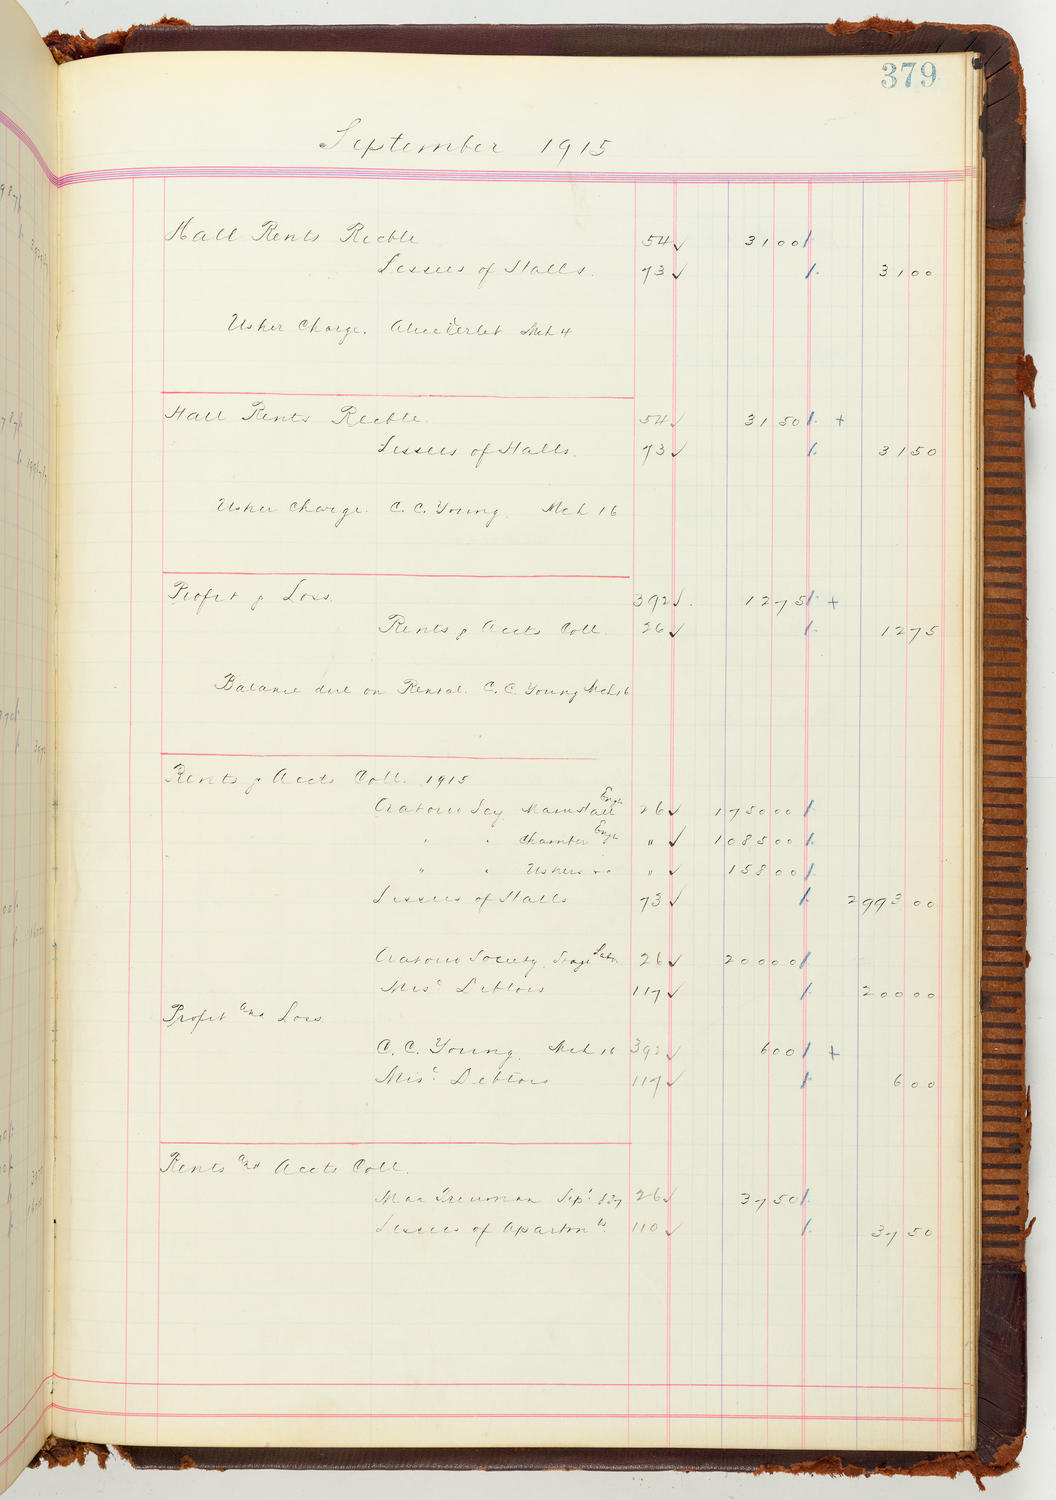 379
September 1915
Hall Rents Recble 54 ✓ 3100
Lessees of Halls. 73 ✓ 3100
Usher Charge. Alice Verlet Mch 4
Hall Rents Recble. 54 ✓ 3150 +
Lessees of Halls. 73 ✓ 3150
Usher Charge. C. C. Young. Mch 16
Profit & Loss. 392 ✓ 1275 +
Rents & Accts Coll. 26 ✓ 1275
Balance due on Rental. C. C. Young Mch 16
Rents & Accts Coll. 1915
Oratorio Socy. Main Hall Engr 26 ✓ 175000
" " Chamber Engr " ✓ 108500
" " Ushers " " ✓ 15800
Lessees of Halls 73 ✓ 299300
Oratorio Society. Stage Labor 26 ✓ 20000
Misc. Debtors 117 ✓ 20000
Profit and Loss.
C. C. Young. Mch 16 392 ✓ 600 +
Misc. Debtors 117 ✓ 600
Rents and Accts Coll.
Max Treuman Sept. 26 ✓ 3750
Lessees of Apartmts. 110 ✓ 3750